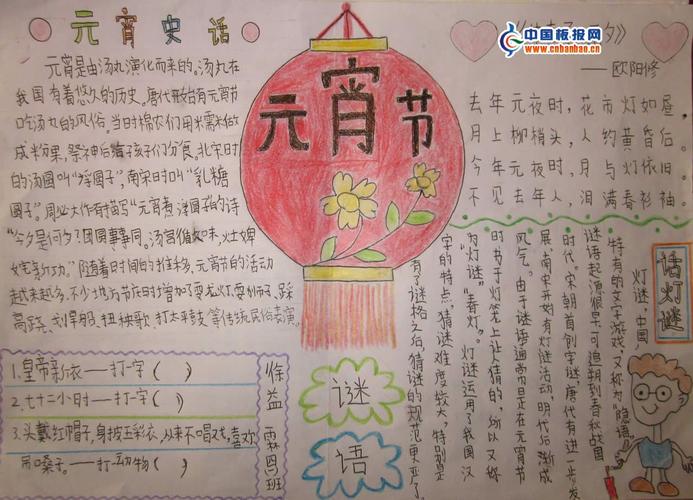 元宵史话
元宵是由汤丸演化而来的。汤丸在
我国有着悠久的历史,唐代开始有元宵节
吃汤丸的风俗。当时棉农们用米糯米做
成米果,祭神后给孩子们分食。北宋时
的汤圆叫“浮圆子”,南宋时叫“乳糖
圆子”。周必大作有描写“元宵煮浮圆子的诗
“今夕是何夕?团圆事事同。汤官
”随着时间的推移,元宵节的活动
越来越多,不少地方节庆时增加了耍龙灯、耍狮子、踩
高跷、划旱船、扭秧歌、打太平鼓等传统民俗表演。
元宵节
中国板报网
www.cnbanbao.cn
——欧阳修
去年元夜时,花市灯如昼
月上柳梢头,人约黄昏后。
今年元夜时,月与灯依旧
不见去年人,泪满春衫袖。
话灯谜
灯谜,中国
特有的文字游戏,又称为“隐语。
谜语起源很早,可追朔到春秋战国
时代。宋朝首创字谜,唐代有进一步发
展,南宋开始有灯谜活动,明代后渐成
风气。由于谜语通常是在元宵节
时书于灯笼上让人猜的,所以又称
为“灯谜”“春灯。灯谜运用了我国汉
字的特点,猜谜难度较大,特别是
有了谜格之后,猜谜的规范更严了。
1.皇帝新衣——打一字( )
2.七十二小时——打一字( )
3.头戴红帽子,身披五彩衣,从来不唱戏,喜欢
吊嗓子。——打一动物( )
徐益
霖四班
谜
语